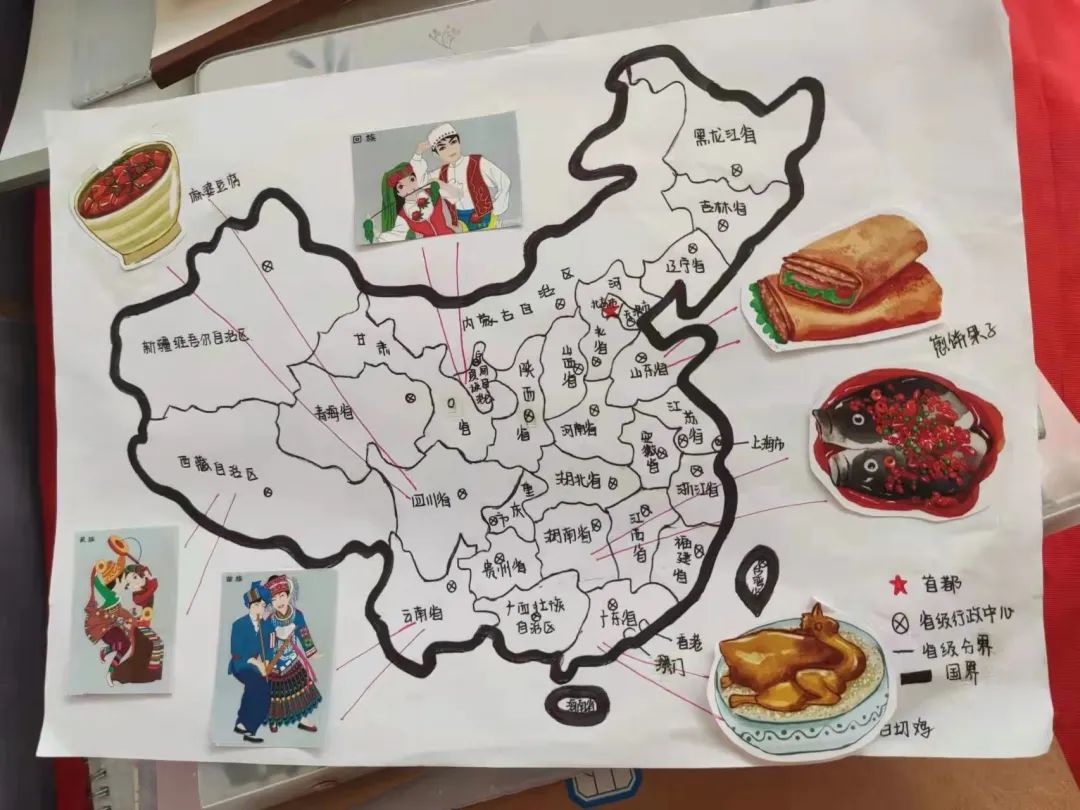 麻婆豆腐
回族
黑龙江省
吉林省
辽宁省
内蒙古自治区
新疆维吾尔自治区
甘肃
省
青海省
西藏自治区
河
北
省
北京市
山西省
陕西省
山东省
河南省
江苏省
安徽省
上海市
四川省
重
庆
市
湖北省
浙江省
湖南省
江西省
福建省
贵州省
云南省
广西壮族
自治区
广东省
澳门
海南省
煎饼果子
藏族
苗族
首都
省级行政中心
省级分界
国界
白切鸡